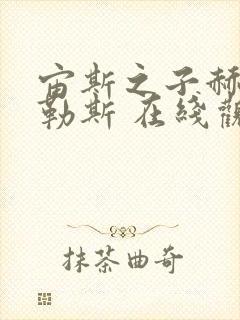 宙斯之子赫
勒斯 在綫觀
抹茶曲奇